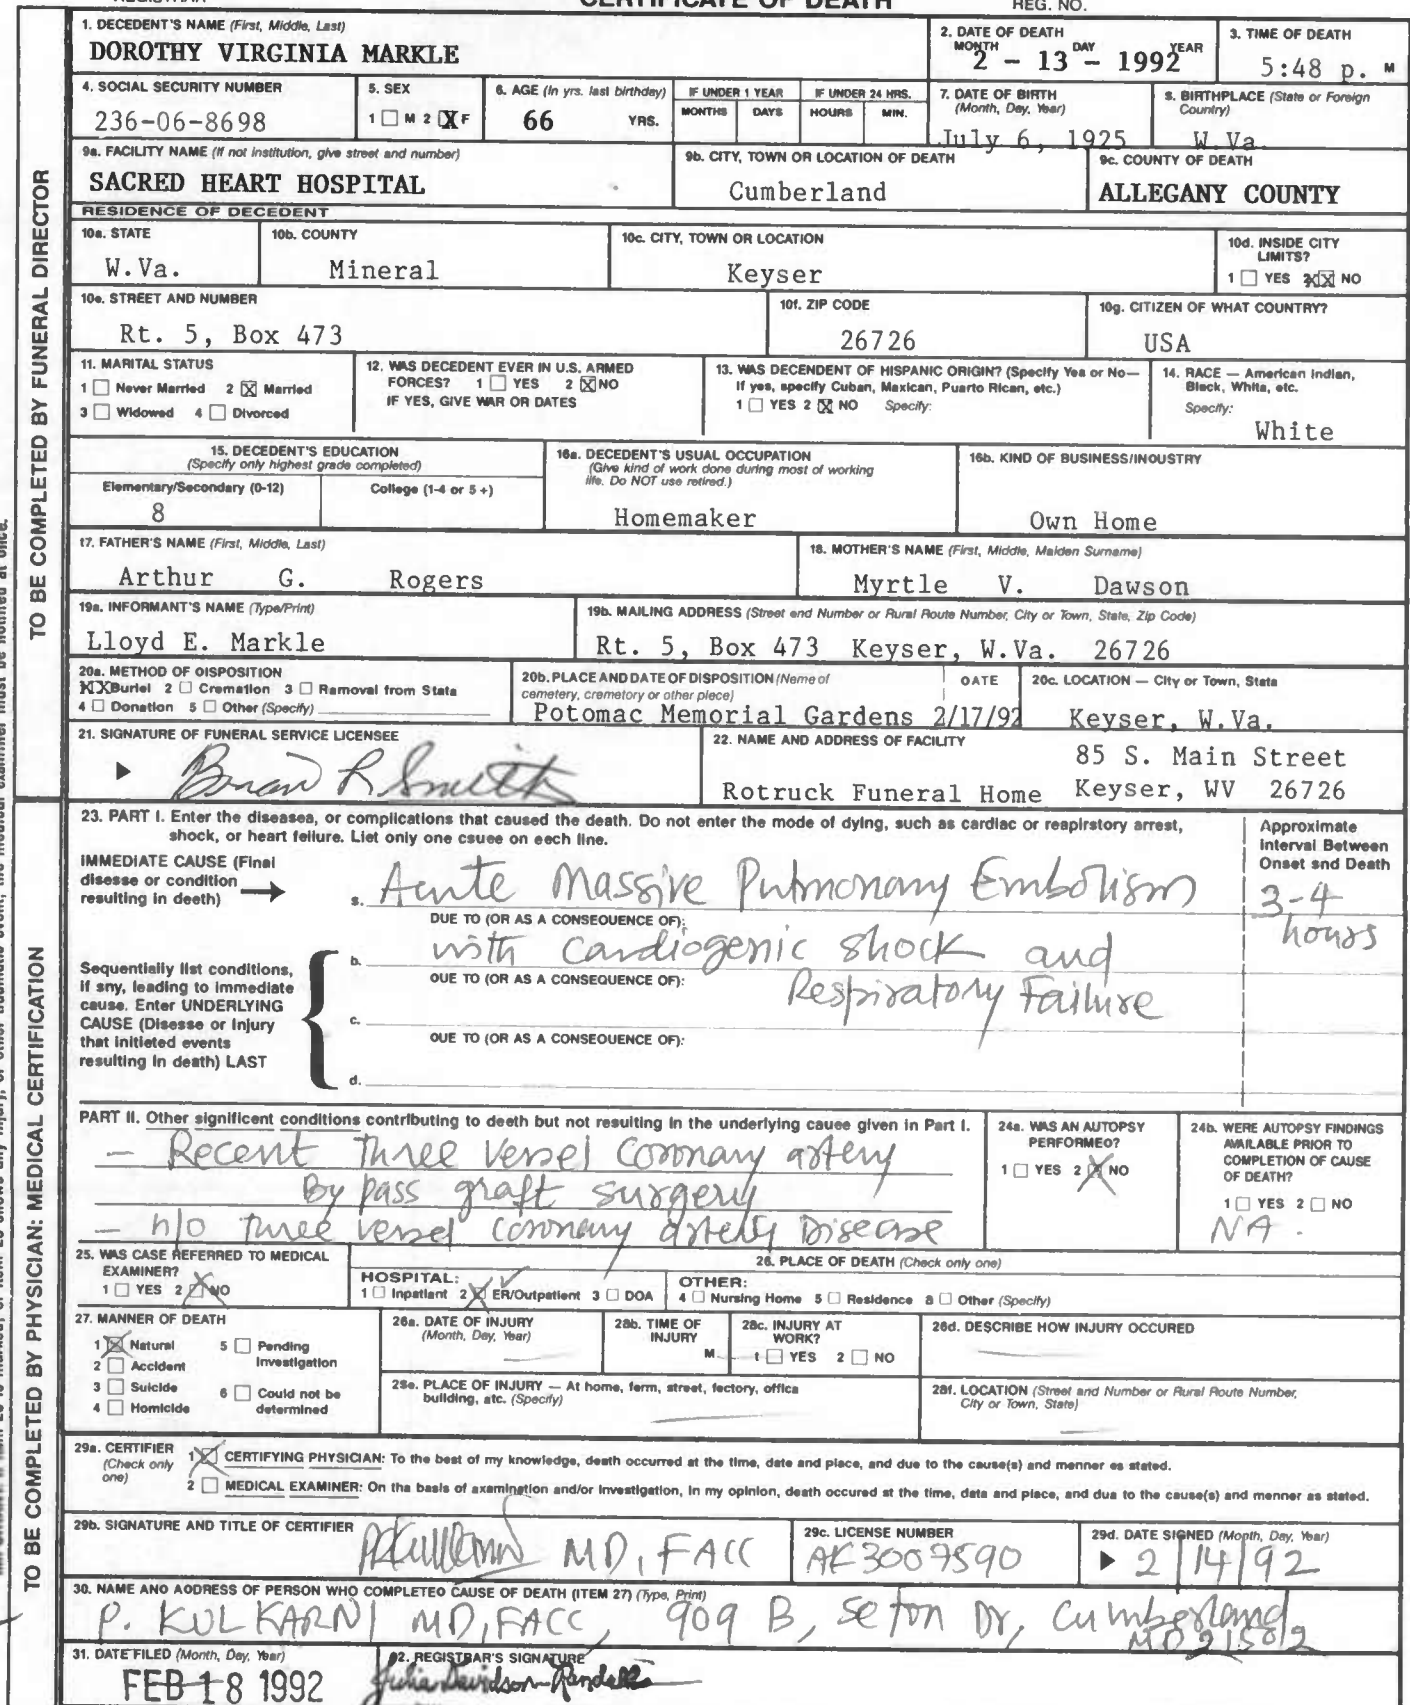 CERTIFICATE OF DEATH
REG. NO.
1. DECEDENT'S NAME (First, Middle, Last)
DOROTHY VIRGINIA MARKLE
2. DATE OF DEATH
MONTH DAY YEAR
2 - 13 - 1992
3. TIME OF DEATH
5:48 p. M
4. SOCIAL SECURITY NUMBER
236-06-8698
5. SEX
1 M 2 X F
6. AGE (In yrs. last birthday)
66 YRS.
IF UNDER 1 YEAR
MONTHS DAYS
IF UNDER 24 HRS.
HOURS MIN.
7. DATE OF BIRTH
(Month, Day, Year)
July 6, 1925
8. BIRTHPLACE (State or Foreign
Country)
W.Va.
9a. FACILITY NAME (If not institution, give street and number)
SACRED HEART HOSPITAL
9b. CITY, TOWN OR LOCATION OF DEATH
Cumberland
9c. COUNTY OF DEATH
ALLEGANY COUNTY
RESIDENCE OF DECEDENT
10a. STATE
W.Va.
10b. COUNTY
Mineral
10c. CITY, TOWN OR LOCATION
Keyser
10d. INSIDE CITY
LIMITS?
1 YES 2 XX NO
10e. STREET AND NUMBER
Rt. 5, Box 473
10f. ZIP CODE
26726
10g. CITIZEN OF WHAT COUNTRY?
USA
11. MARITAL STATUS
1 Never Married 2 X Married
3 Widowed 4 Divorced
12. WAS DECEDENT EVER IN U.S. ARMED
FORCES? 1 YES 2 X NO
IF YES, GIVE WAR OR DATES
13. WAS DECENDENT OF HISPANIC ORIGIN? (Specify Yes or No—
If yes, specify Cuban, Maxican, Puarto Rican, etc.)
1 YES 2 X NO Specify:
14. RACE — American Indian,
Black, White, etc.
Specify:
White
15. DECEDENT'S EDUCATION
(Specify only highest grade completed)
Elementary/Secondary (0-12)
8
College (1-4 or 5+)
16a. DECEDENT'S USUAL OCCUPATION
(Give kind of work done during most of working
life. Do NOT use retired.)
Homemaker
16b. KIND OF BUSINESS/INOUSTRY
Own Home
17. FATHER'S NAME (First, Middle, Last)
Arthur G. Rogers
18. MOTHER'S NAME (First, Middle, Maiden Surname)
Myrtle V. Dawson
19a. INFORMANT'S NAME (Type/Print)
Lloyd E. Markle
19b. MAILING ADDRESS (Street end Number or Rural Route Number, City or Town, State, Zip Code)
Rt. 5, Box 473 Keyser, W.Va. 26726
20a. METHOD OF OISPOSITION
XX Buriel 2 Cremation 3 Ramoval from Stata
4 Donation 5 Other (Specify)
20b. PLACE AND DATE OF DISPOSITION (Neme of
cemetery, cremetory or other plece)
OATE
Potomac Memorial Gardens 2/17/92
20c. LOCATION — City or Town, Stata
Keyser, W.Va.
21. SIGNATURE OF FUNERAL SERVICE LICENSEE
Brian R Smith
22. NAME AND ADDRESS OF FACILITY
85 S. Main Street
Rotruck Funeral Home Keyser, WV 26726
TO BE COMPLETED BY FUNERAL DIRECTOR
23. PART I. Enter the diseases, or complications that caused the death. Do not enter the mode of dying, such as cardiac or reapirstory arrest,
shock, or heart feilure. Liet only one csuee on eech line.
Approximate
Interval Between
Onset snd Death
IMMEDIATE CAUSE (Final
disesse or condition
resulting in deeth)
a. Acute Massive Pulmonary Embolism
3-4
hours
DUE TO (OR AS A CONSEOUENCE OF):
b. with Cardiogenic shock and
OUE TO (OR AS A CONSEQUENCE OF):
Respiratory Failure
c.
OUE TO (OR AS A CONSEOUENCE OF):
d.
Sequentially list conditions,
if sny, leading to immediate
cause. Enter UNDERLYING
CAUSE (Disesse or injury
that initieted events
resulting in death) LAST
PART II. Other significent conditions contributing to deeth but not resulting in the underlying cauee given in Part I.
- Recent Three Vessel Coronary artery
By pass graft surgery
- h/o three vessel coronary artery Disease
24a. WAS AN AUTOPSY
PERFORMEO?
1 YES 2 X NO
24b. WERE AUTOPSY FINDINGS
AVAILABLE PRIOR TO
COMPLETION OF CAUSE
OF DEATH?
1 YES 2 NO
NA.
25. WAS CASE REFERRED TO MEDICAL
EXAMINER?
1 YES 2 X NO
26. PLACE OF DEATH (Check only one)
HOSPITAL:
1 Inpatiant 2 X ER/Outpatient 3 DOA
OTHER:
4 Nursing Home 5 Residence 8 Other (Specify)
27. MANNER OF DEATH
1 X Natural 5 Pending
2 Accident Investigation
3 Suicide 6 Could not be
4 Homicide determined
28a. DATE OF INJURY
(Month, Day, Year)
28b. TIME OF
INJURY
M
28c. INJURY AT
WORK?
1 YES 2 NO
28d. DESCRIBE HOW INJURY OCCURED
28e. PLACE OF INJURY — At home, ferm, street, fectory, offica
building, atc. (Specify)
28f. LOCATION (Street and Number or Rural Route Number,
City or Town, State)
29a. CERTIFIER
(Check only
one)
1 X CERTIFYING PHYSICIAN: To the best of my knowledge, death occurred at the time, date and place, and due to the cause(s) and menner es stated.
2 MEDICAL EXAMINER: On tha basis of axamination and/or Investigation, in my opinion, death occured st the time, data and place, and dua to the cause(s) and menner as stated.
29b. SIGNATURE AND TITLE OF CERTIFIER
PKulkarni MD, FACC
29c. LICENSE NUMBER
AK3007590
29d. DATE SIGNED (Month, Day, Year)
2/14/92
30. NAME ANO AODRESS OF PERSON WHO COMPLETEO CAUSE OF DEATH (ITEM 27) (Type, Print)
P. KULKARNI MD, FACC, 909 B, Seton Dr, Cumberland
MD 21502
31. DATE FILED (Month, Day, Year)
FEB 18 1992
32. REGISTRAR'S SIGNATURE
Julia Davidson-Randall
TO BE COMPLETED BY PHYSICIAN: MEDICAL CERTIFICATION